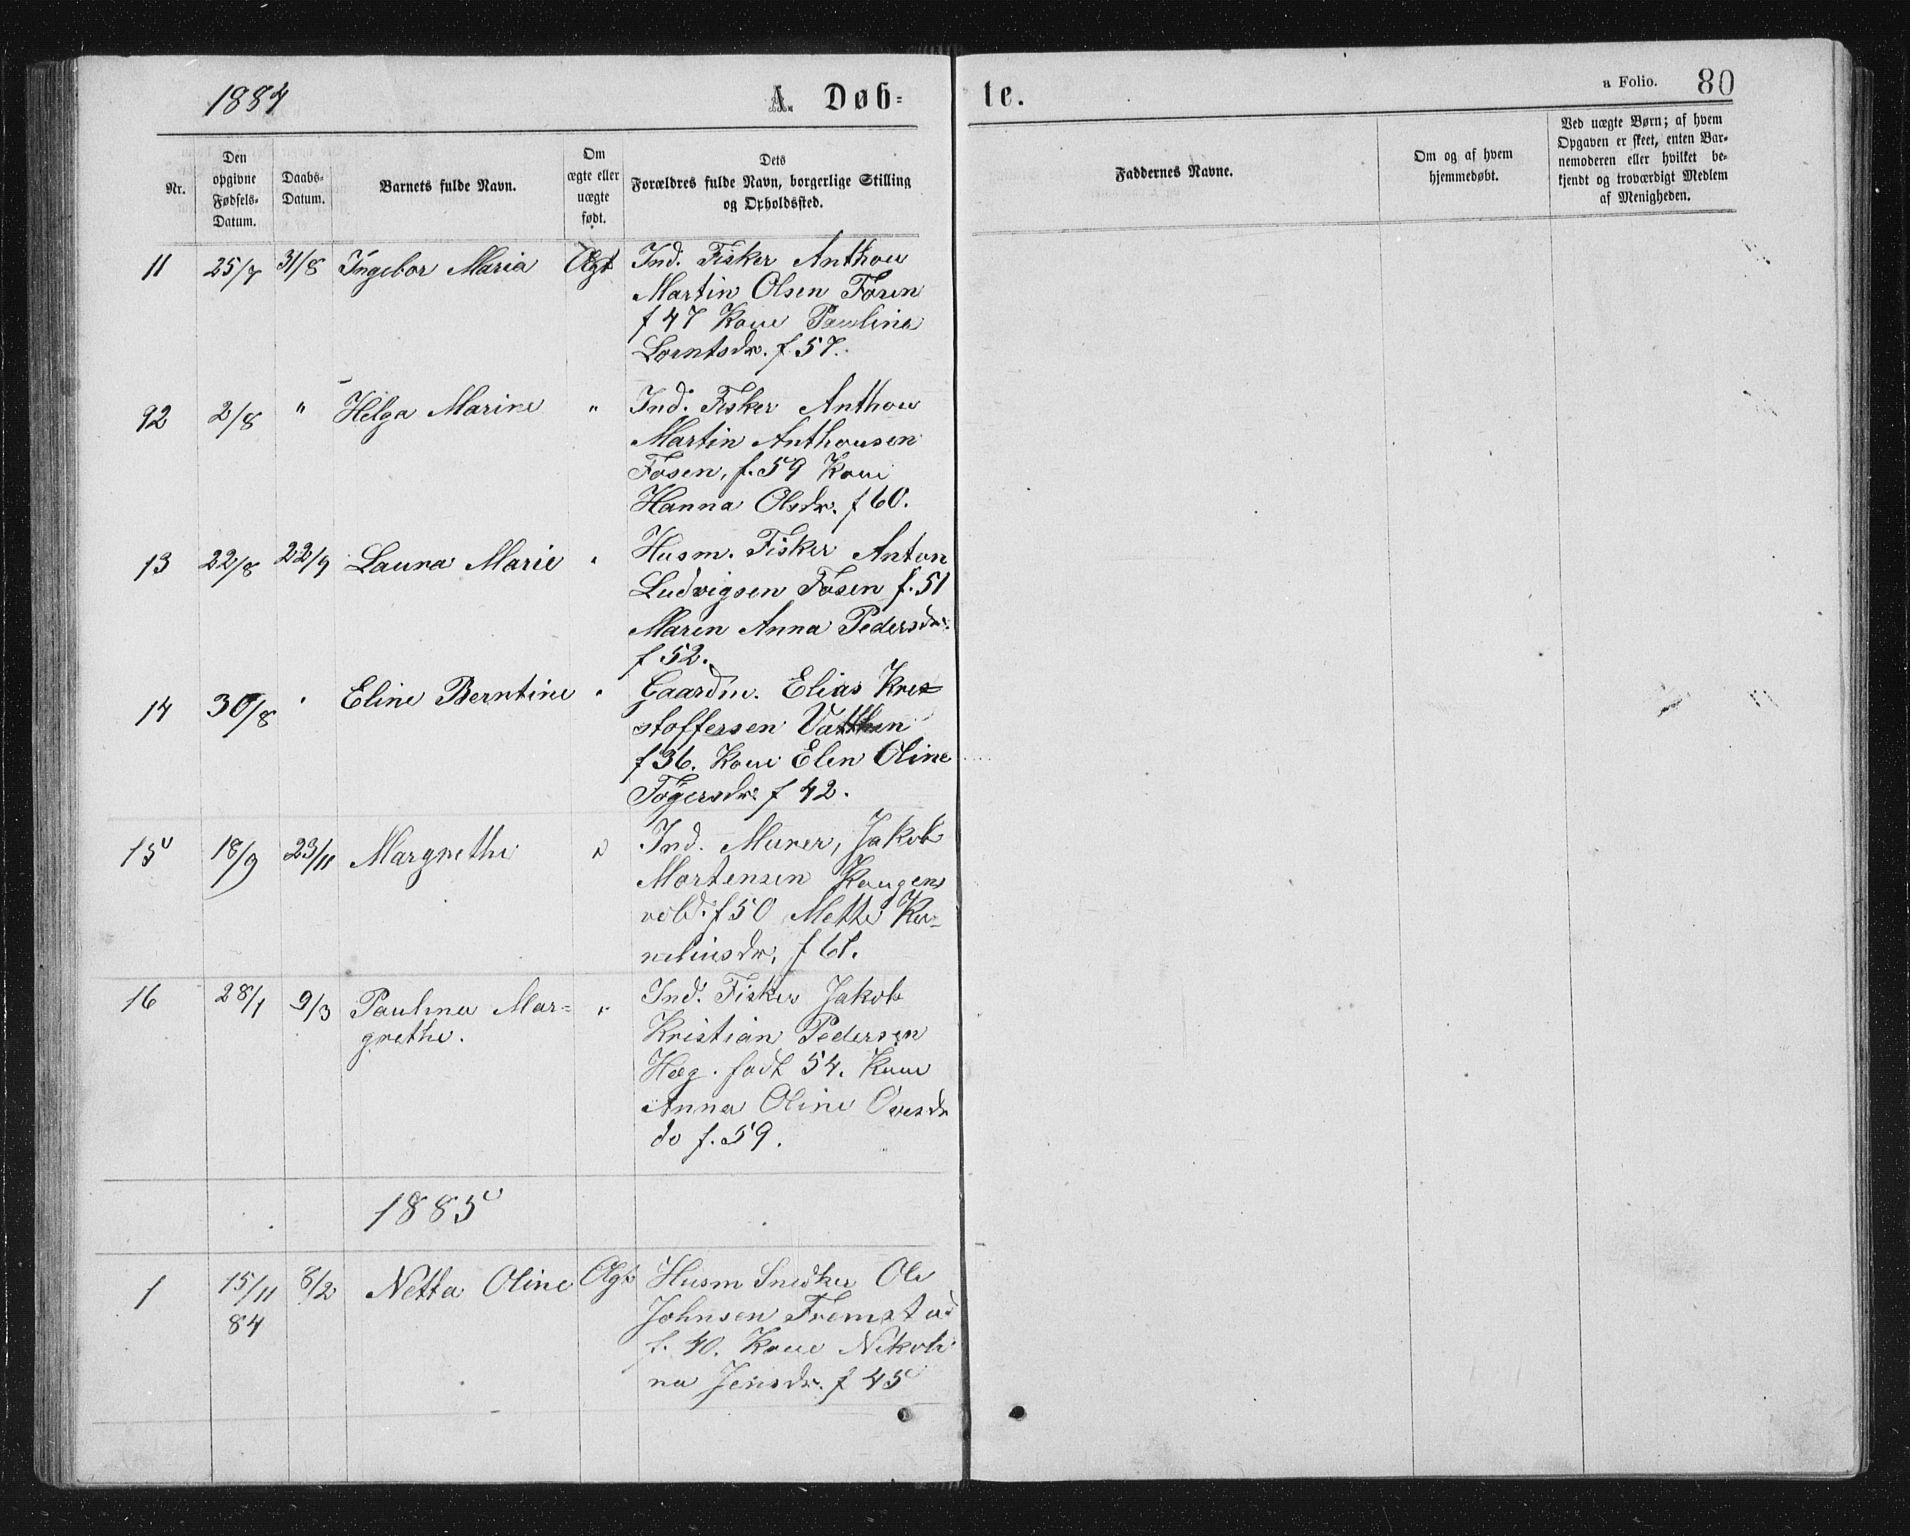 1884
A. Døb-
te.
a Folio. 80
Nr.
Den opgivne Fødsels-Datum.
Daabs-Datum.
Barnets fulde Navn.
Om ægte eller uægte født.
Dets Forældres fulde Navn, borgerlige Stilling og Opholdssted.
Faddernes Navne.
Om og af hvem hjemmedøbt.
Ved uægte Børn; af hvem Opgaven er skeet, enten Barnemoderen eller hvilket bekjendt og troværdigt Medlem af Menigheden.
11 25/7 31/8 Ingebor Maria Ægt Ind. Fisker Anthon
Martin Olsen Fosen
f 47 Kone Paulina
Lorntsdr. f. 57.
92 2/8 " Helga Marine " Ind. Fisker Anthon
Martin Anthonsen
Fosen, f. 59 Kone
Hanna Olsdr. f 60.
13 22/8 22/9 Laura Marie " Husm. Fisker Anton
Ludvigsen Fosen f. 51
Maren Anna Pedersdr.
f 52.
14 30/8 " Eline Berntine " Gaardm. Elias Kris-
stoffersen
f 36. Kone Elen Oline
f 42.
15 18/9 23/11 Margrethe " Ind. Murer, Jakob
Mortensen Kongens
vold. f 50 Mette Kor-
neliusdr. f 61.
16 28/1 9/3 Paulina Mar- " Ind. Fisker Jakob
grethe. Kristian Pedersen
Hæg. født 54. Kone
Anna Oline Ovesdr
do f. 59.
1885
1 15/11 8/2 Netta Oline Ægt Husm Snedker Ole
84 Johnsen Fremstad
f. 40. Kone Nikoli
na Jensdr. f 45